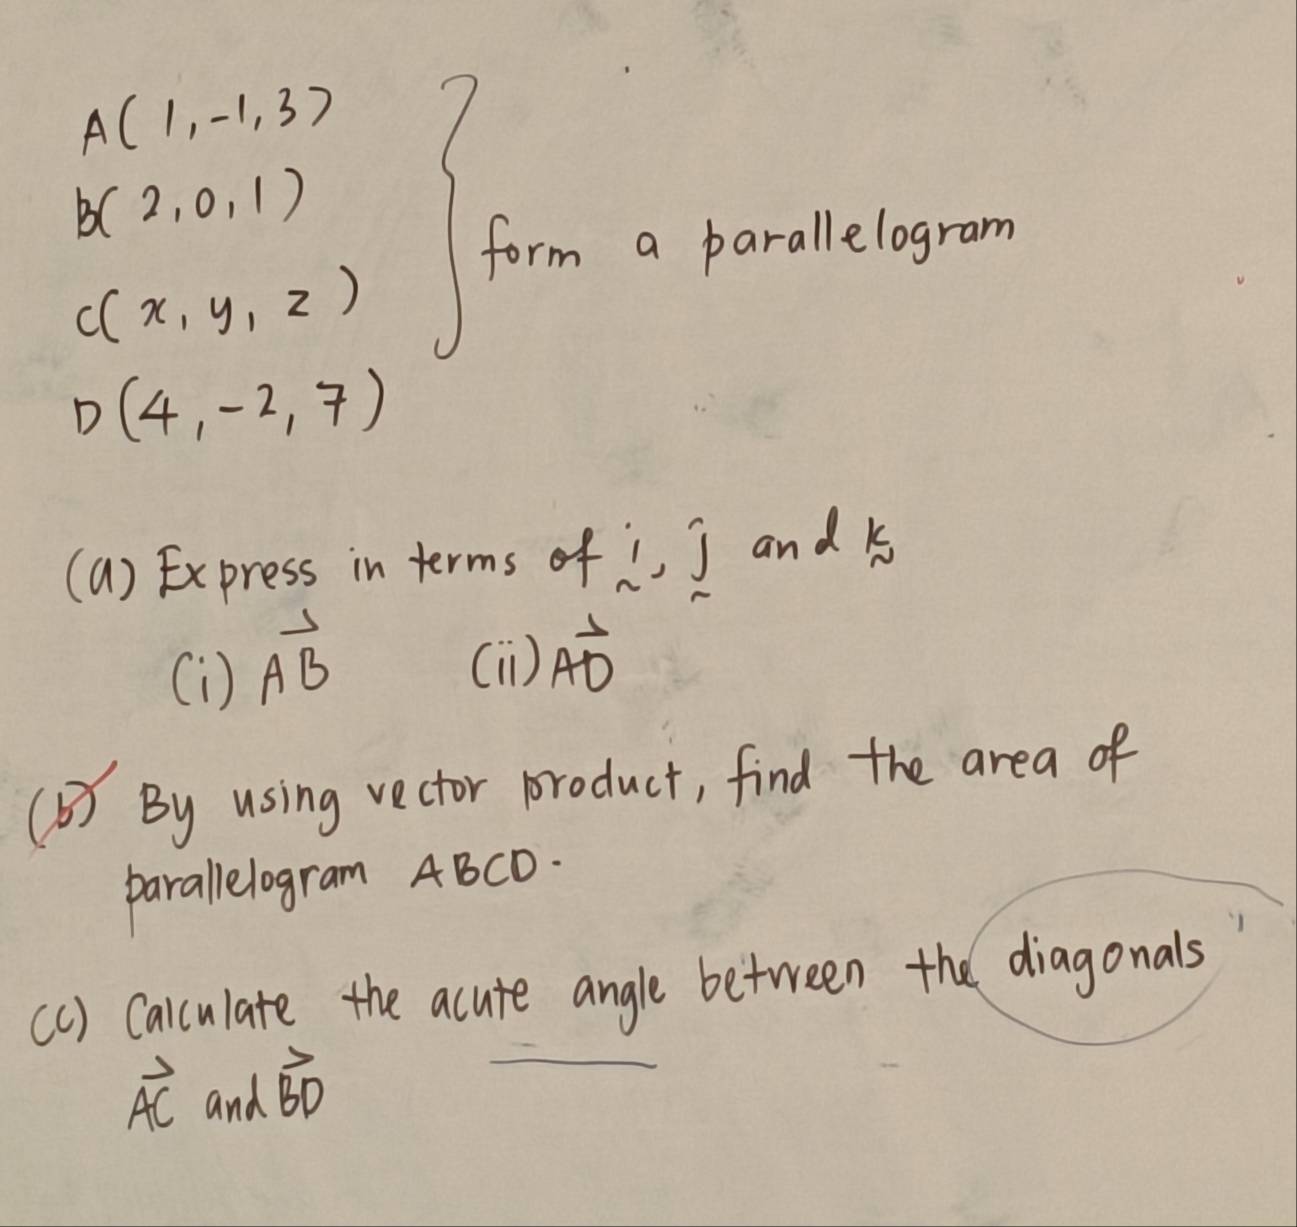 A(1,-1,3)
B(2,0,1)
C(x,y,z)
form a parallelogram
D(4,-2,7)
(a) Express in terms of i, j and k
(i) AB (ii) AD
(b) By using vector product, find the area of
parallelogram ABCD.
(c) Calculate the acute angle between the diagonals
AC and BD